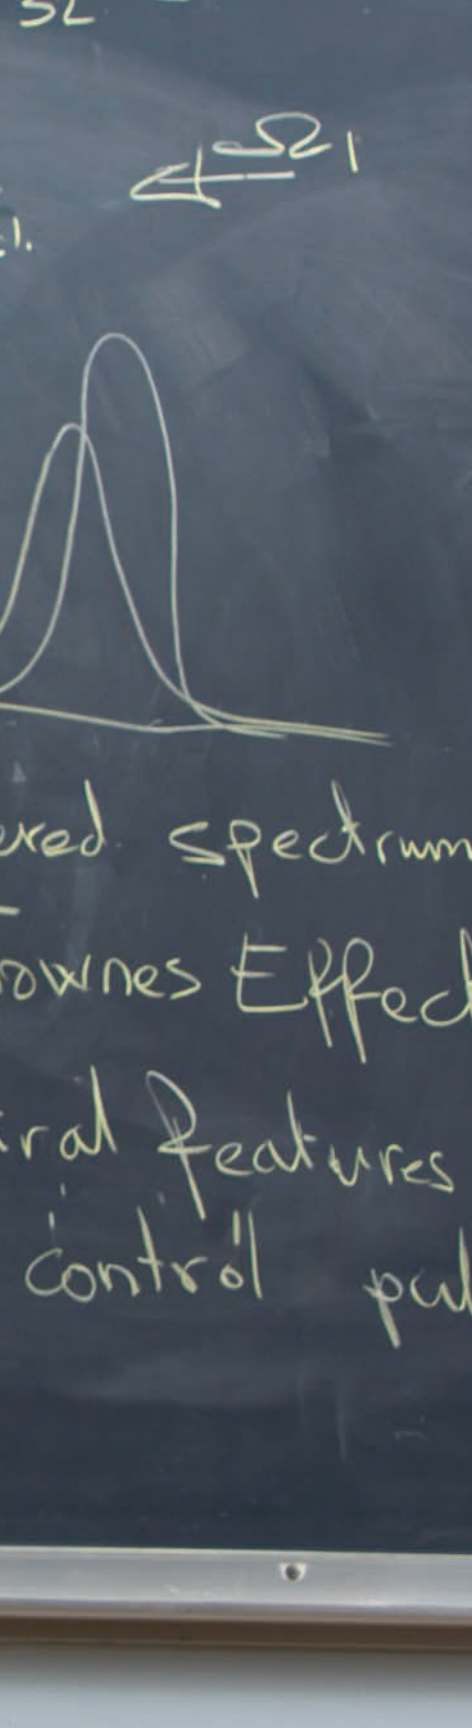 Ω1
spectrum
ownes Effec
ral features
control pul